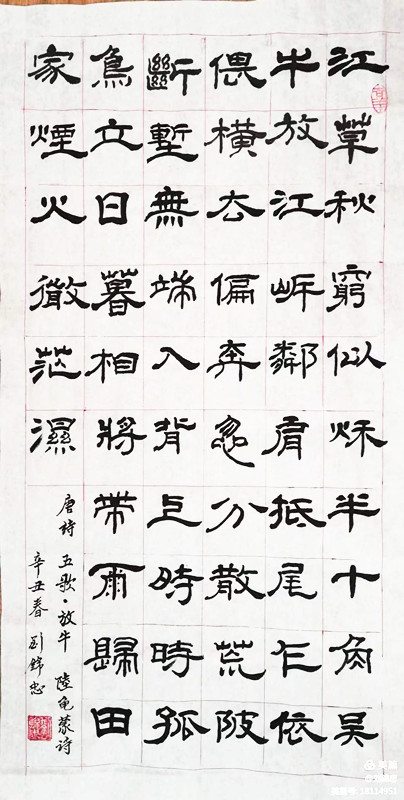 江草秋窮似秋半十角吴
牛放江岸鄰肩抵尾乍依
偎橫去偏奔忽分散荒陂
斷塹無端入背上時時孤
鳥立日暮相將帶雨歸田
家煙火微茫濕
唐詩 五歌·放牛 陸龟蒙诗
辛丑春 刘锦忠
美篇
美篇号: 18114951